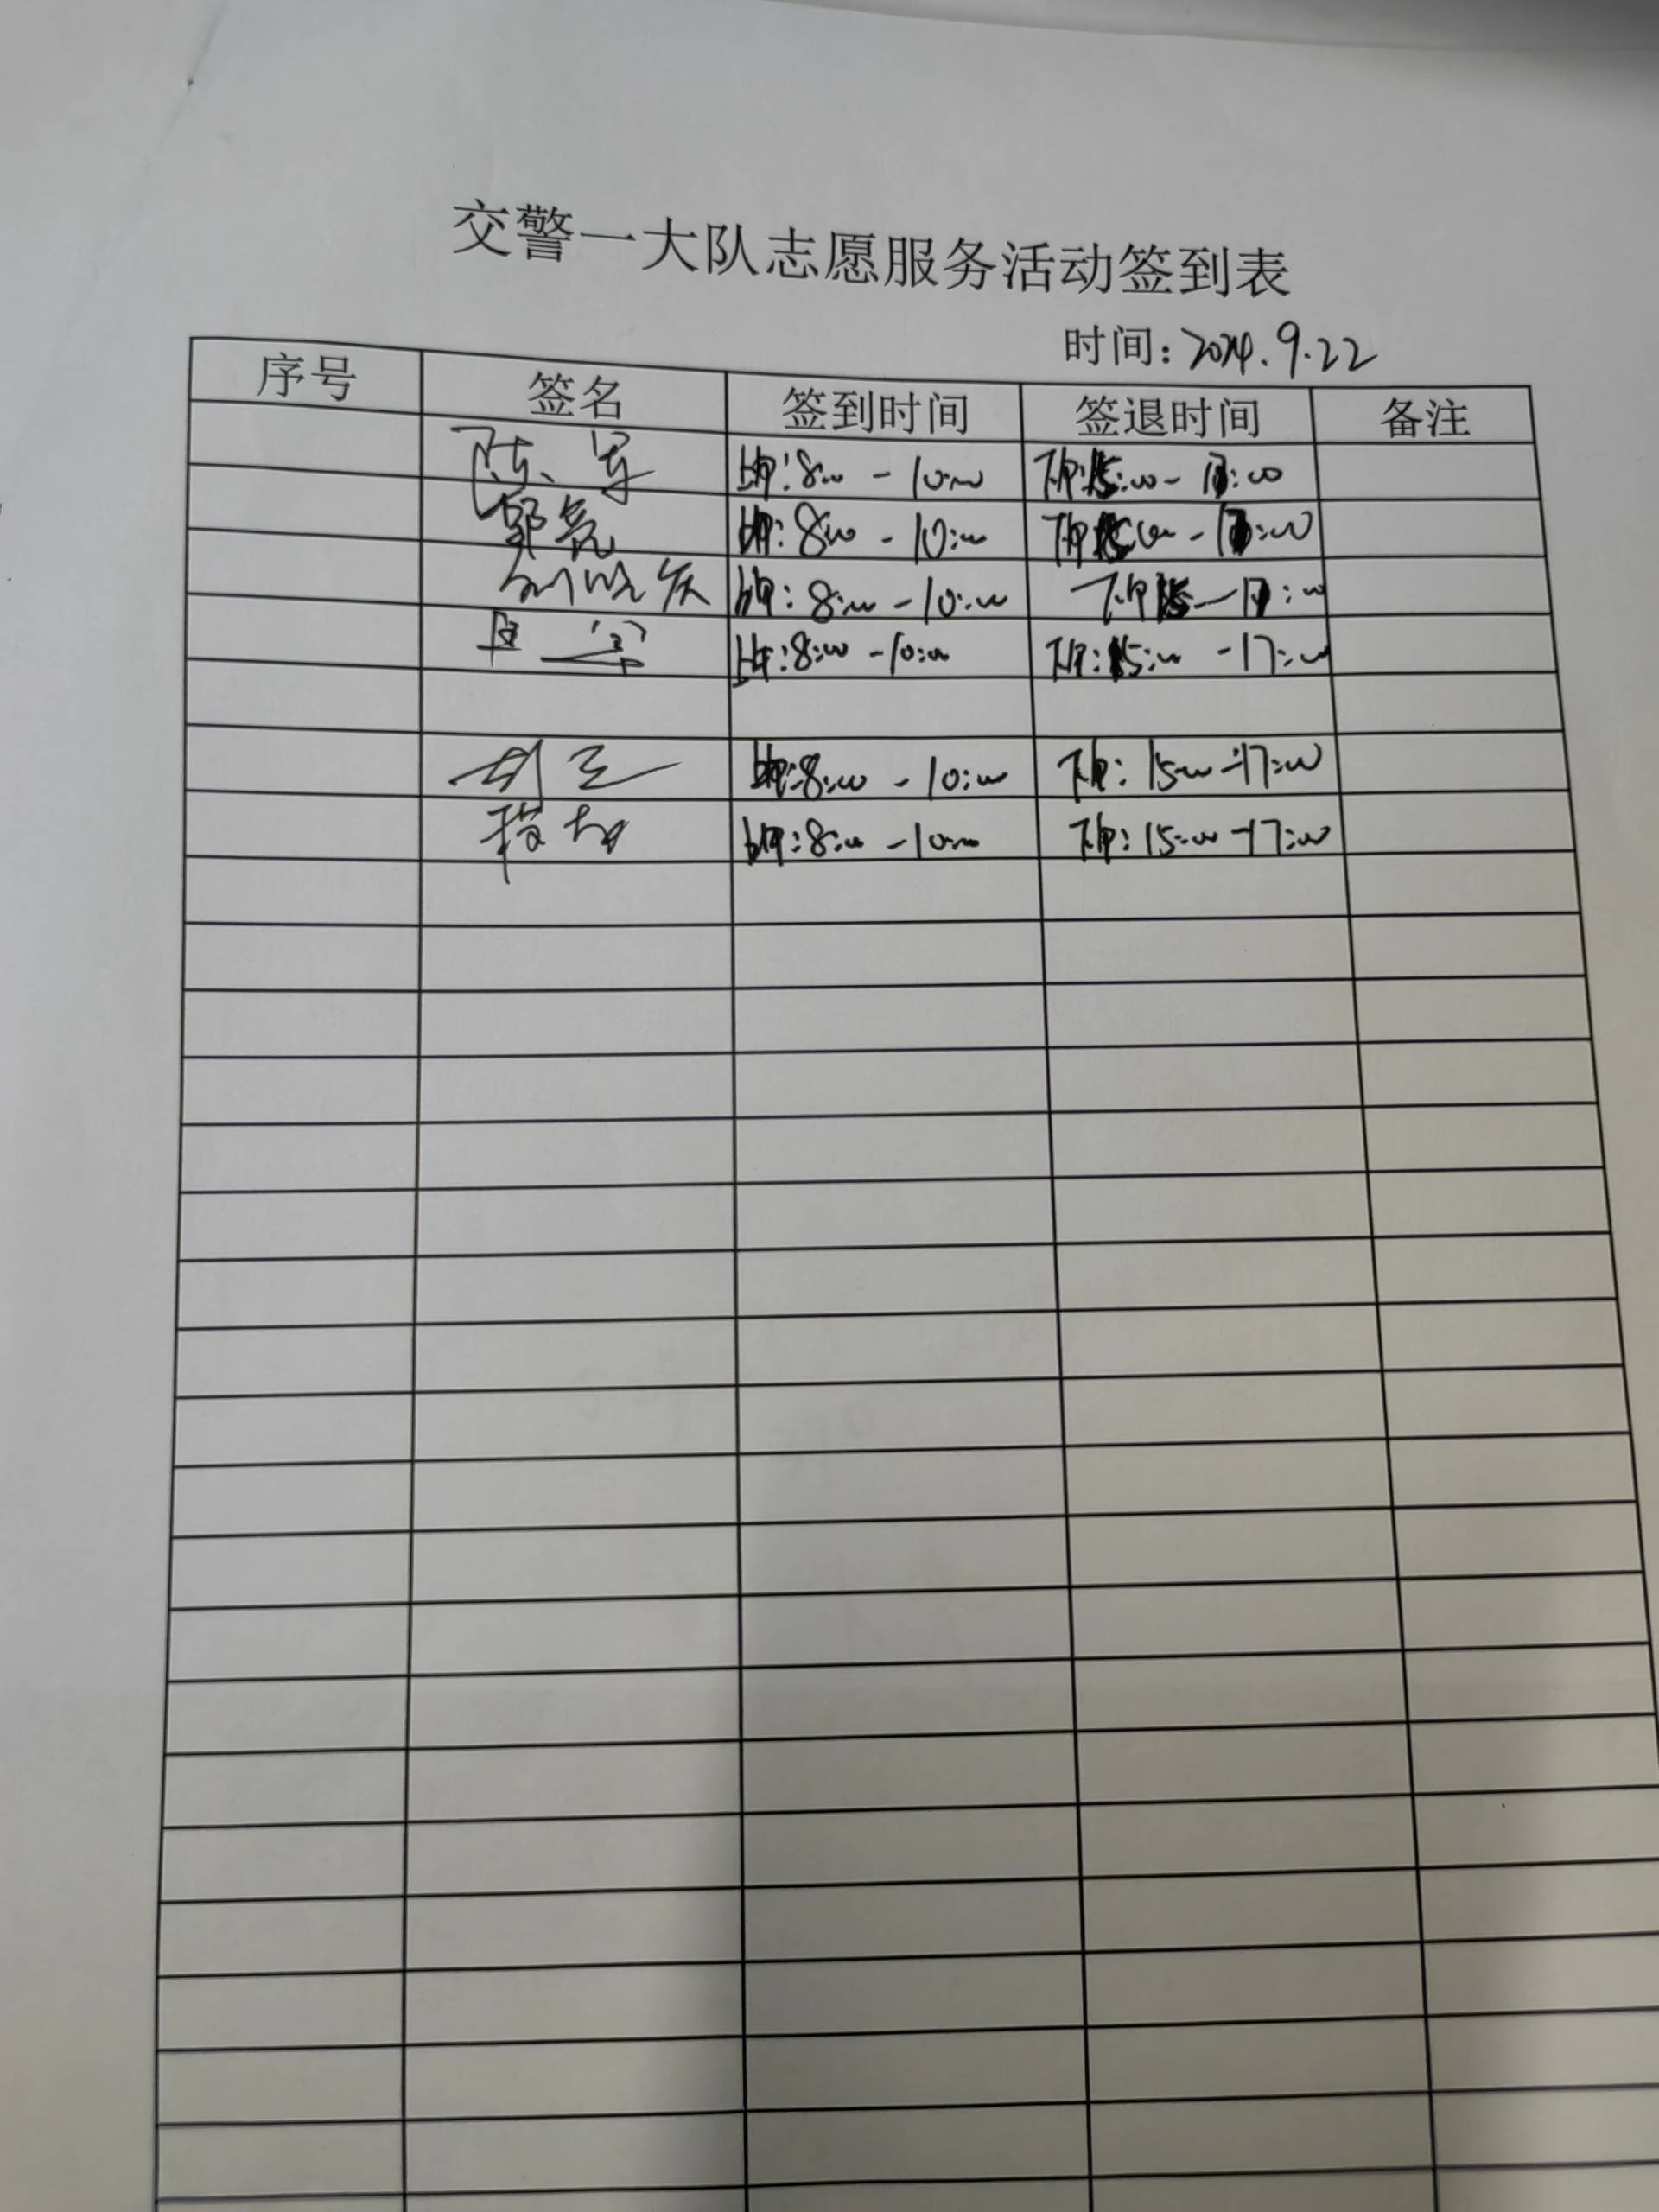 交警一大队志愿服务活动签到表
时间：2024.9.22
序号 签名 签到时间 签退时间 备注
陈军 上午：8:00 - 10:00 下午：15:00 - 17:00
郭亮 上午：8:00 - 10:00 下午15:00 - 17:00
刘 上午：8:00 - 10:00 下午15 - 17:00
上午：8:00 - 10:00 下午：15:00 - 17:00
上午：8:00 - 10:00 下午：15:00 - 17:00
上午：8:00 - 10:00 下午：15:00 - 17:00